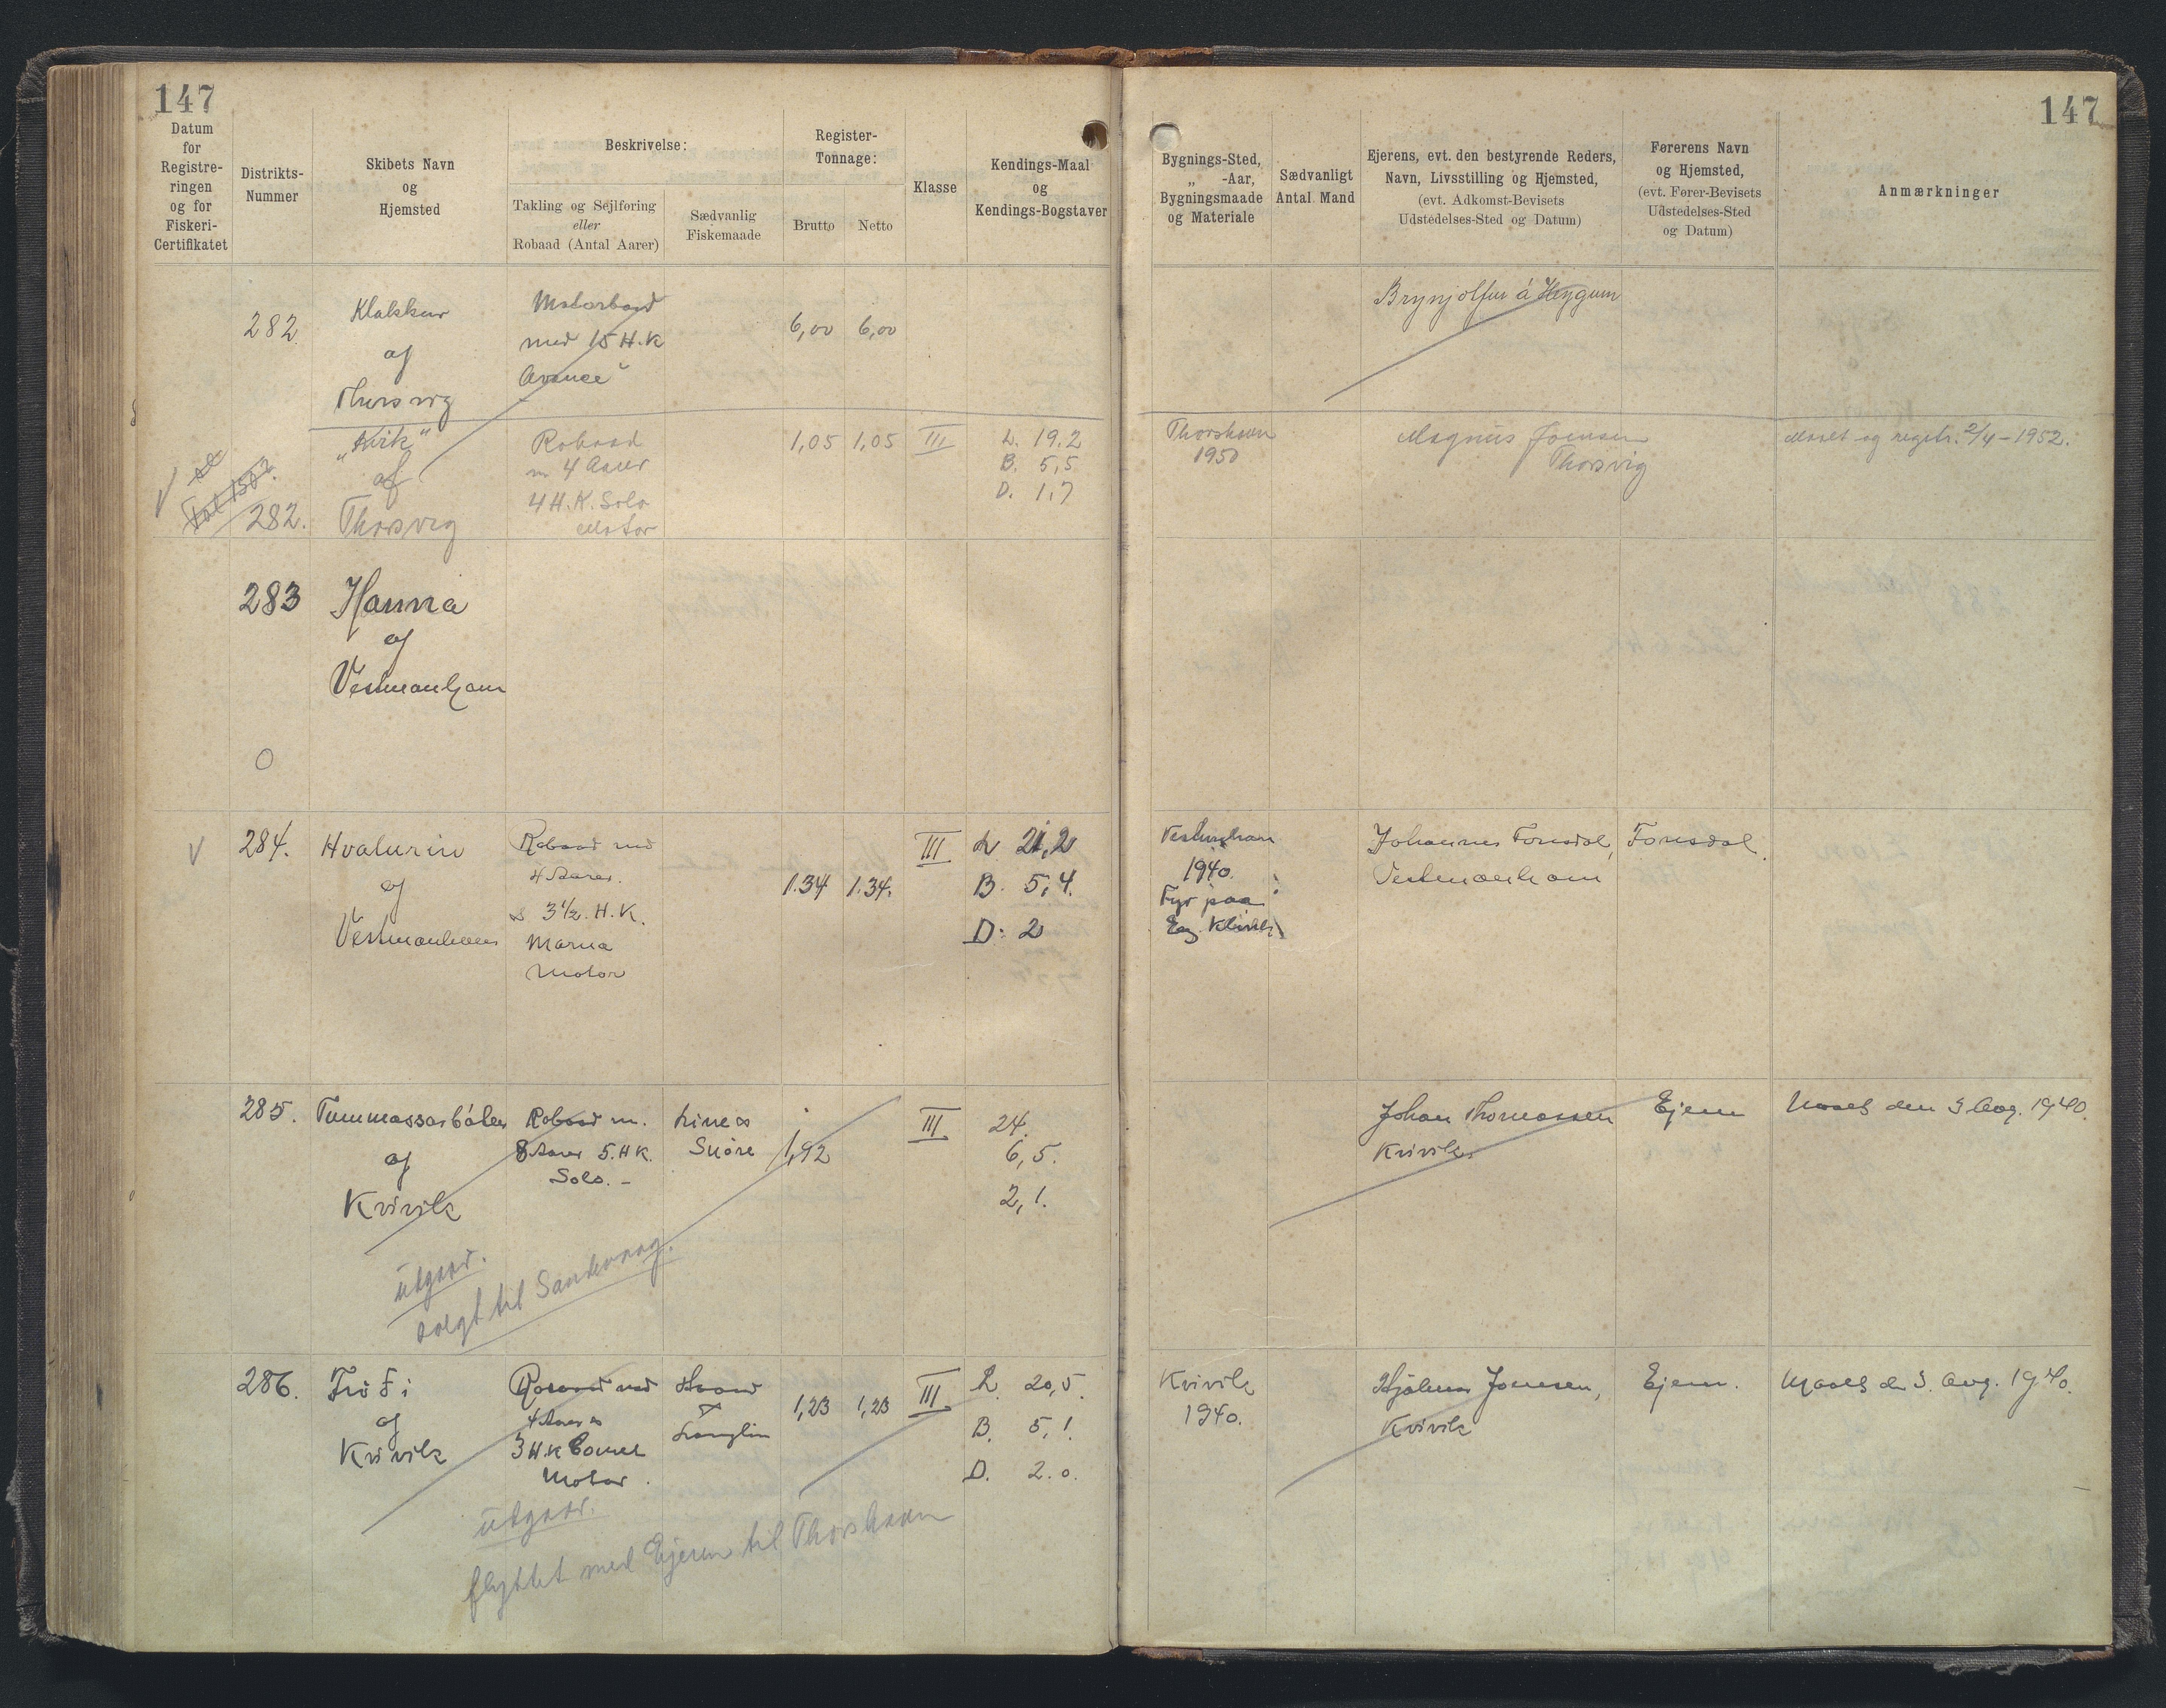 147
147
Datum
for
Registre-
ringen
og for
Fiskeri-
Certifikatet
Distrikts-
Nummer
Skibets Navn
og
Hjemsted
Beskrivelse:
Takling og Sejlføring
eller
Robaad (Antal Aarer)
Sædvanlig
Fiskemaade
Register-
Tonnage:
Brutto
Netto
Klasse
Kendings-Maal
og
Kendings-Bogstaver
Bygnings-Sted,
„ -Aar,
Bygningsmaade
og Materiale
Sædvanligt
Antal Mand
Ejerens, evt. den bestyrende Reders,
Navn, Livsstilling og Hjemsted,
(evt. Adkomst-Bevisets
Udstedelses-Sted og Datum)
Førerens Navn
og Hjemsted,
(evt. Fører-Bevisets
Udstedelses-Sted
og Datum)
Anmærkninger
282
Klakkur
af
Thorsvig
Motorbaad
med 15 H.K
Avance
6,00 6,00
Brynjolfur á Heygum
282.
"Kvik"
af
Thorsvig
Robaad
m 4 Aarer
4 H.K. Solo
Motor
1,05 1,05
III
L. 19.2
B. 5,5
D. 1,7
Thorshavn
1950
Magnus Joensen
Thorsvig
Maalt og registr. 2/4 - 1952.
283
Hanna
af
Vestmanhavn
O
V
284.
Hvalurin
af
Vestmanhavn
Robaad med
4 Aarer.
& 3 1/2 H.K.
Marna
Motor
1.34 1.34.
III
L 21,2
B. 5,4.
D: 2
Vestmhavn
1940.
Fyr paa
Eg. Klink
Johannes Fonsdal,
Vestmanhavn
Fonsdal.
285.
Tummassarbátur
af
Kvivik
Robaad m.
8 Aarer 5. HK.
Solo. -
Line &
Snøre
1,92
III
24.
6,5.
2,1.
Johan Thomassen
Kvivik
Ejeren
Maalt den 3 Aug. 1940.
udgaar.
solgt til Sandevaag.
286.
Frófi
af
Kvivik
Robaad med
4 Aarer &
3 H.K Comet
Motor.
Haand
&
Langlin
1,23 1,23
III
L. 20,5.
B. 5,1.
D. 2.0.
Kvivik
1940.
Hjalmar Joensen,
Kvivik
Ejeren.
Maalt den 3. Aug. 1940.
udgaar.
flyttet med Ejeren til Thorshavn